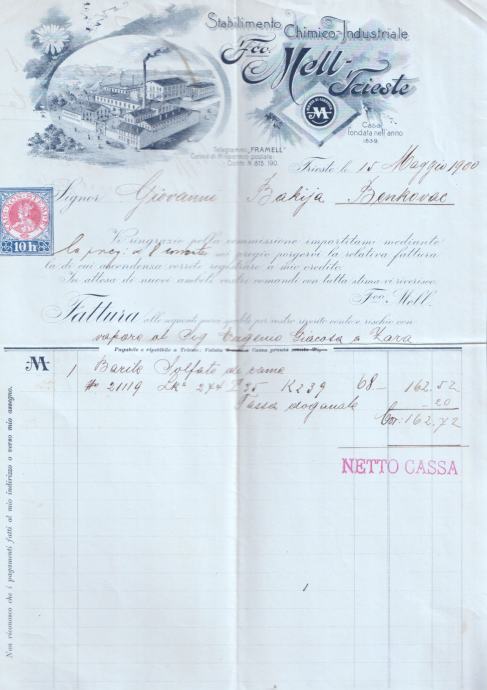 Stabilimento Chimico-Industriale
Fco. Mell-Trieste
M
Casa
fondata nell'anno
1839.
Telegrammi "FRAMELL"
Conto N. 815.190.
Trieste li 15 Maggio 1900
Signor Giovanni Bakija Benkovac
10 h
Vi ringrazio della commissione impartitami mediante
la preg. a 8 corrente mi pregio porgervi la relativa fattura
la di cui ascendenza vorrete registrare a mio credito.
In attesa di nuovi ambiti vostri comandi con tutta stima vi riverisco.
Fco. Mell.
Fattura alle seguenti merci spedite per vostro conto e rischio con
vapore al Sig Eugenio Giacosa a Zara
Pagabile e
M 1 Barile Solfato di rame
No 21119 LKo 274 T 35 K 239 68— 162.52
Tassa doganale -.20
Cor: 162.72
NETTO CASSA
Non riconosco che i pagamenti fatti al mio indirizzo o verso mio assegno.